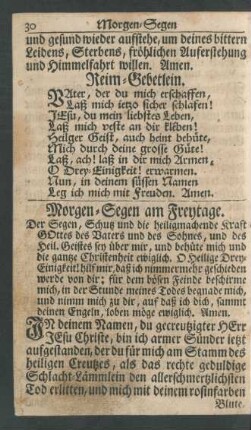 30 Morgen-Segen
und gesund wieder aufstehe, um deines bittern
Leidens, Sterbens, fröhlichen Auferstehung
und Himmelfahrt willen. Amen.
Reim-Gebetlein.
VAter, der du mich erschaffen,
Laß mich ietzo sicher schlafen!
JEsu, du mein liebstes Leben,
Laß mich veste an dir kleben!
Heilger Geist, auch heint behüte,
Mich durch deine grosse Güte!
Laß, ach! laß in dir mich Armen,
O Drey-Einigkeit! erwarmen.
Nun, in deinem süssen Namen
Leg ich mich mit Freuden. Amen.
Morgen-Segen am Freytage.
Der Segen, Schutz und die heiligmachende Kraft
GOttes des Vaters und des Sohnes, und des
Heil. Geistes sey über mir, und behüte mich und
die gantze Christenheit ewiglich. O Heilige Drey-
Einigkeit! hilf mir, daß ich nimmermehr geschieden
werde von dir; für dem bösen Feinde beschirme
mich, in der Stunde meines Todes begnade mich,
und nimm mich zu dir, auf daß ich dich, sammt
deinen Engeln, loben möge ewiglich. Amen.
IN deinem Namen, du gecreutzigter HErr
JEsu Christe, bin ich armer Sünder ietzt
aufgestanden, der du für mich am Stamm des
heiligen Creutzes, als das rechte geduldige
Schlacht-Lämmlein den allerschmertzlichsten
Tod erlitten, und mich mit deinem rosinfarben
Blute,